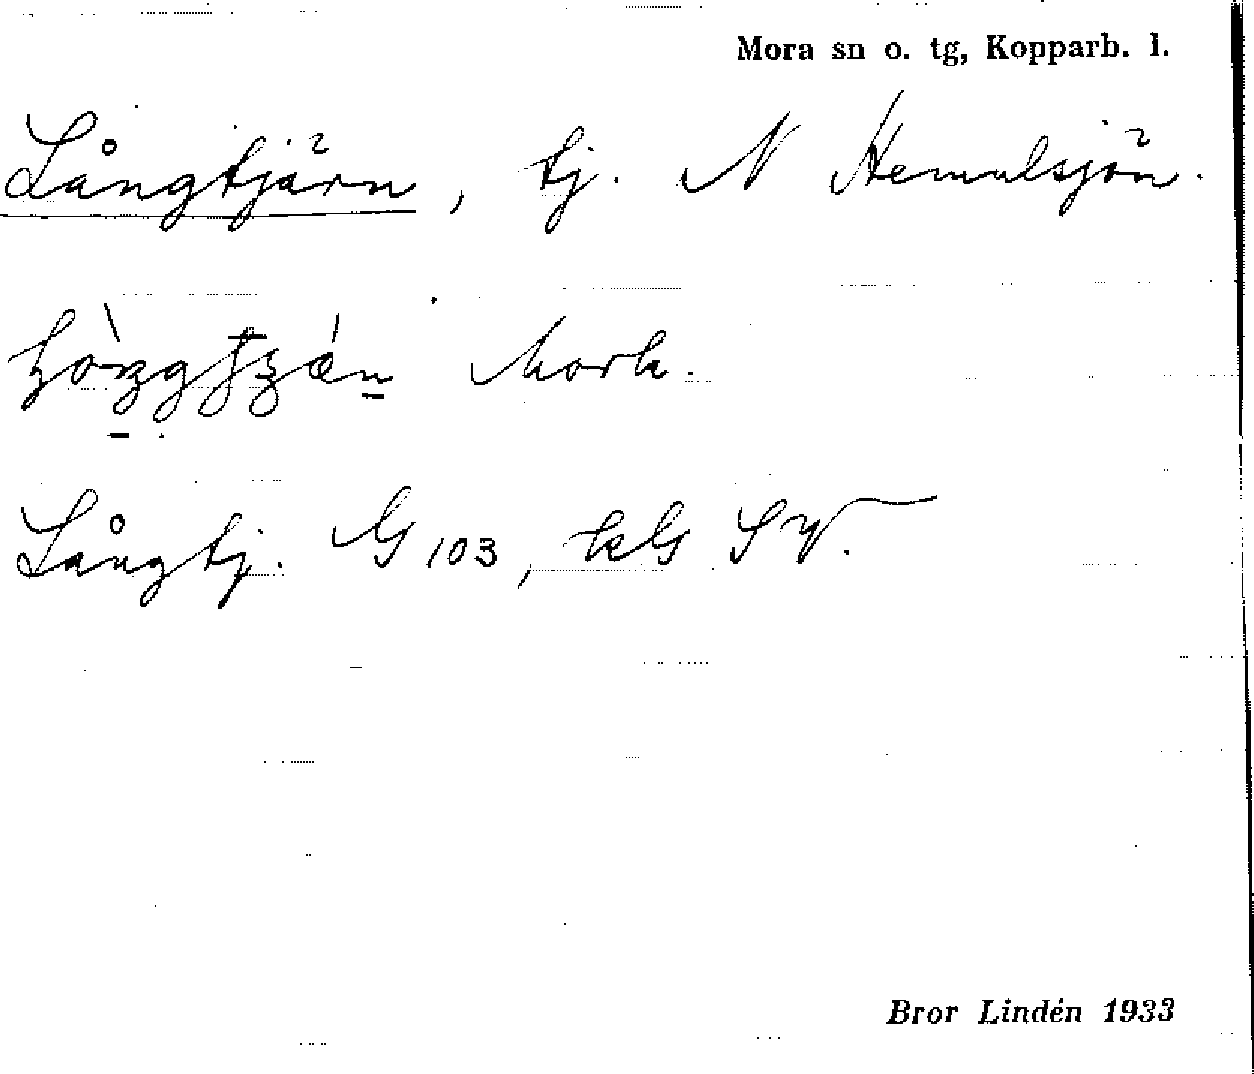 Mora sn o. tg, Kopparb. l.
Långtjärn, tj. N Hemulsjön.
Långtj. G 103, kG SV.
Bror Lindén 1933